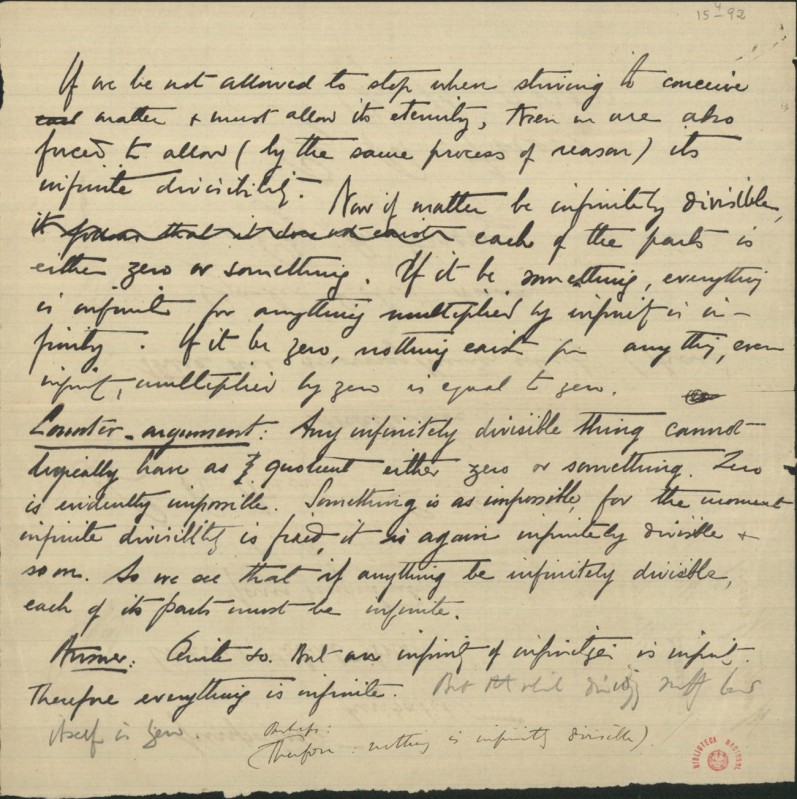 15⁴-92
If we be not allowed to stop when striving to conceive
matter & must allow its eternity, then we are also
forced to allow (by the same process of reason) its
infinite divisibility. Now if matter be infinitely divisible,
it follows that it does not exist each of the parts is
either zero or something. If it be something, everything
is infinite for anything multiplied by infinity is in-
finity. If it be zero, nothing exists for anything, even
infinity, multiplied by zero is equal to zero.
Counter-argument: Any infinitely divisible thing cannot
logically have as quotient either zero or something. Zero
is evidently impossible. Something is as impossible, for the moment
infinite divisibility is fixed, it is again infinitely divisible &
so on. So we see that if anything be infinitely divisible,
each of its parts must be infinite.
Answer: Quite so. But an infinity of infinities is infinity.
Therefore everything is infinite. But
itself is zero. Perhaps:
(Therefore: nothing is infinitely divisible)
BIBLIOTECA NACIONAL